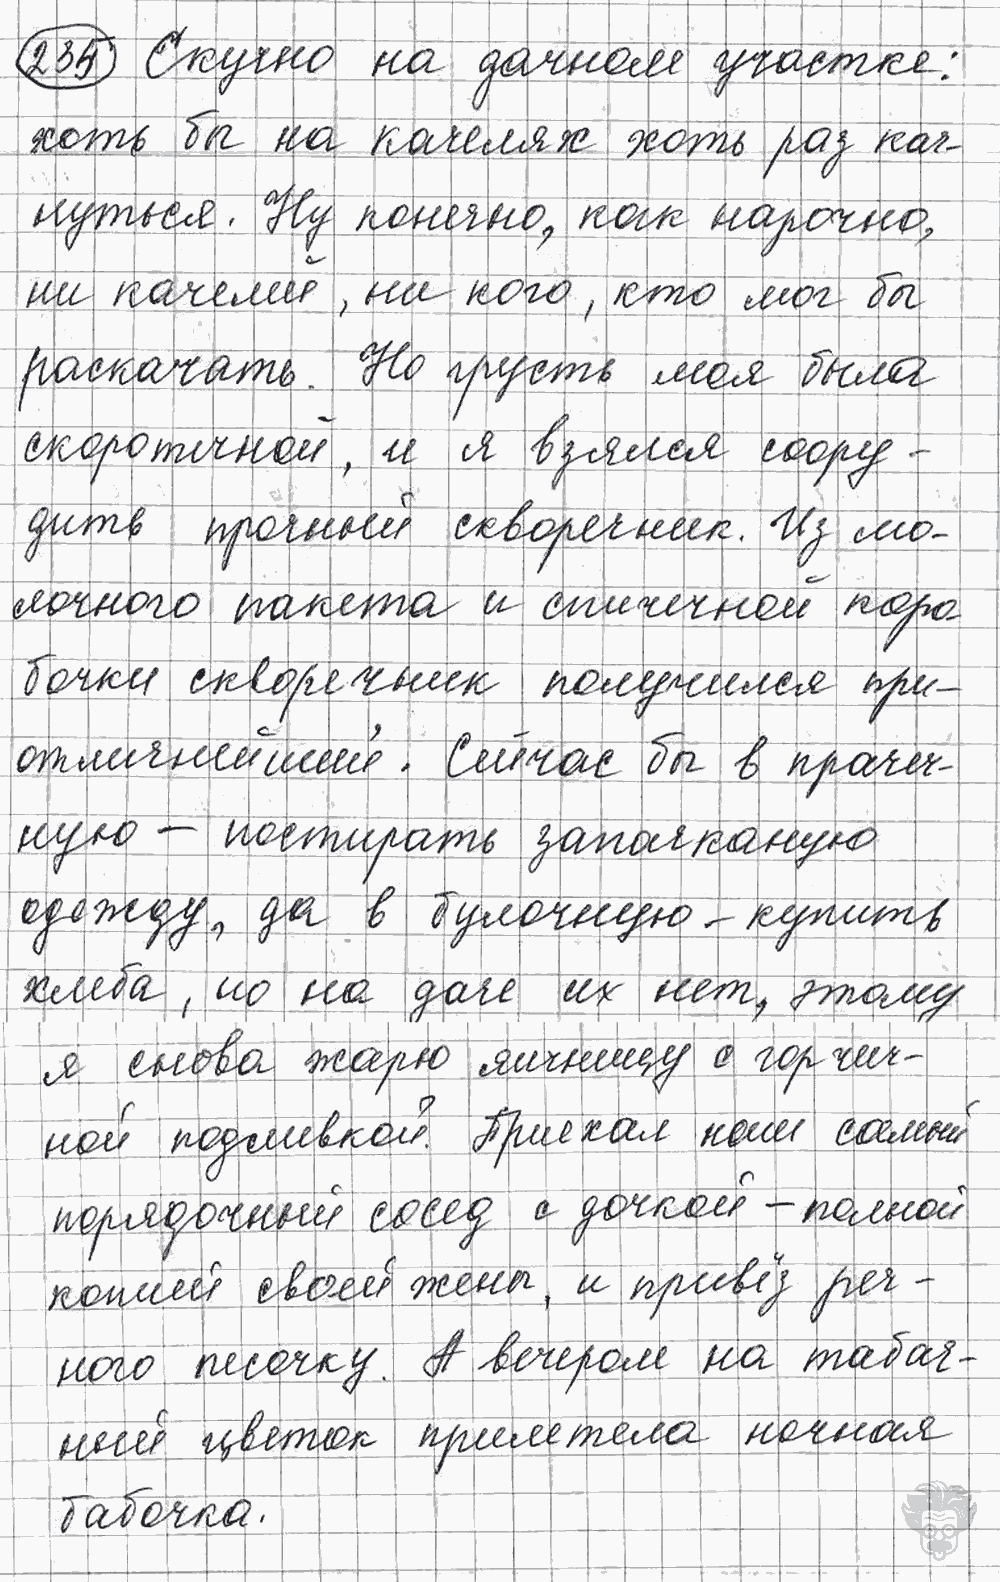 235 Скучно на дачном участке:
хоть бы на качелях хоть раз кач-
нуться. Ну конечно, как нарочно,
ни качелей, ни кого, кто мог бы
раскачать. Но грусть моя была
скоротечной, и я взялся соору-
дить прочный скворечник. Из мо-
лочного пакета и спичечной коро-
бочки скворечник получился при-
отличнейший. Сейчас бы в прачеч-
ную – постирать запачканую
одежду, да в булочную – купить
хлеба, но на даче их нет, этому
я снова жарю яичницу с горчич-
ной подливкой. Приехал наш самый
порядочный сосед с дочкой – полной
копией своей жены, и привёз реч-
ного песочку. А вечером на табач-
ный цветок прилетела ночная
бабочка.